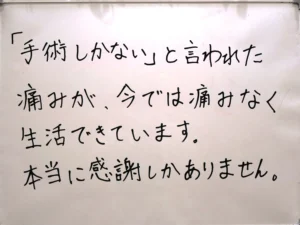 「手術しかない」と言われた
痛みが、今では痛みなく
生活できています。
本当に感謝しかありません。